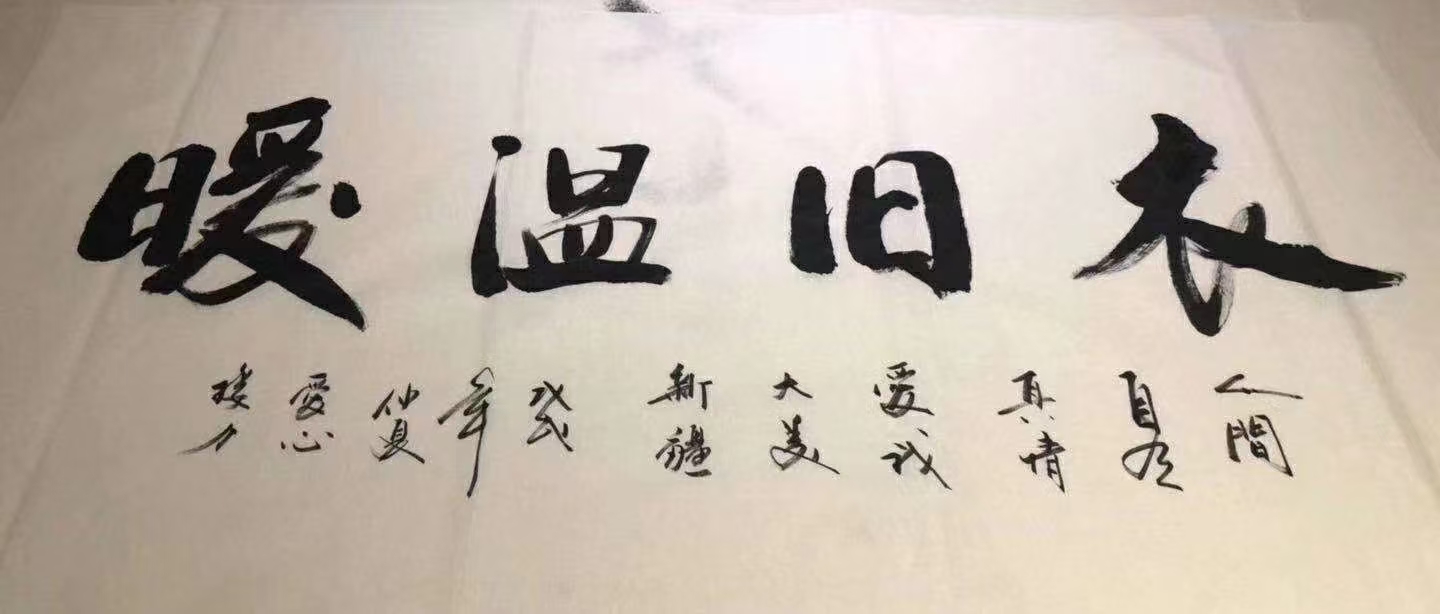 衣旧温暖
人間
自有
真情
爱我
大美
新疆
戊戌
年
仲夏
爱心
接力